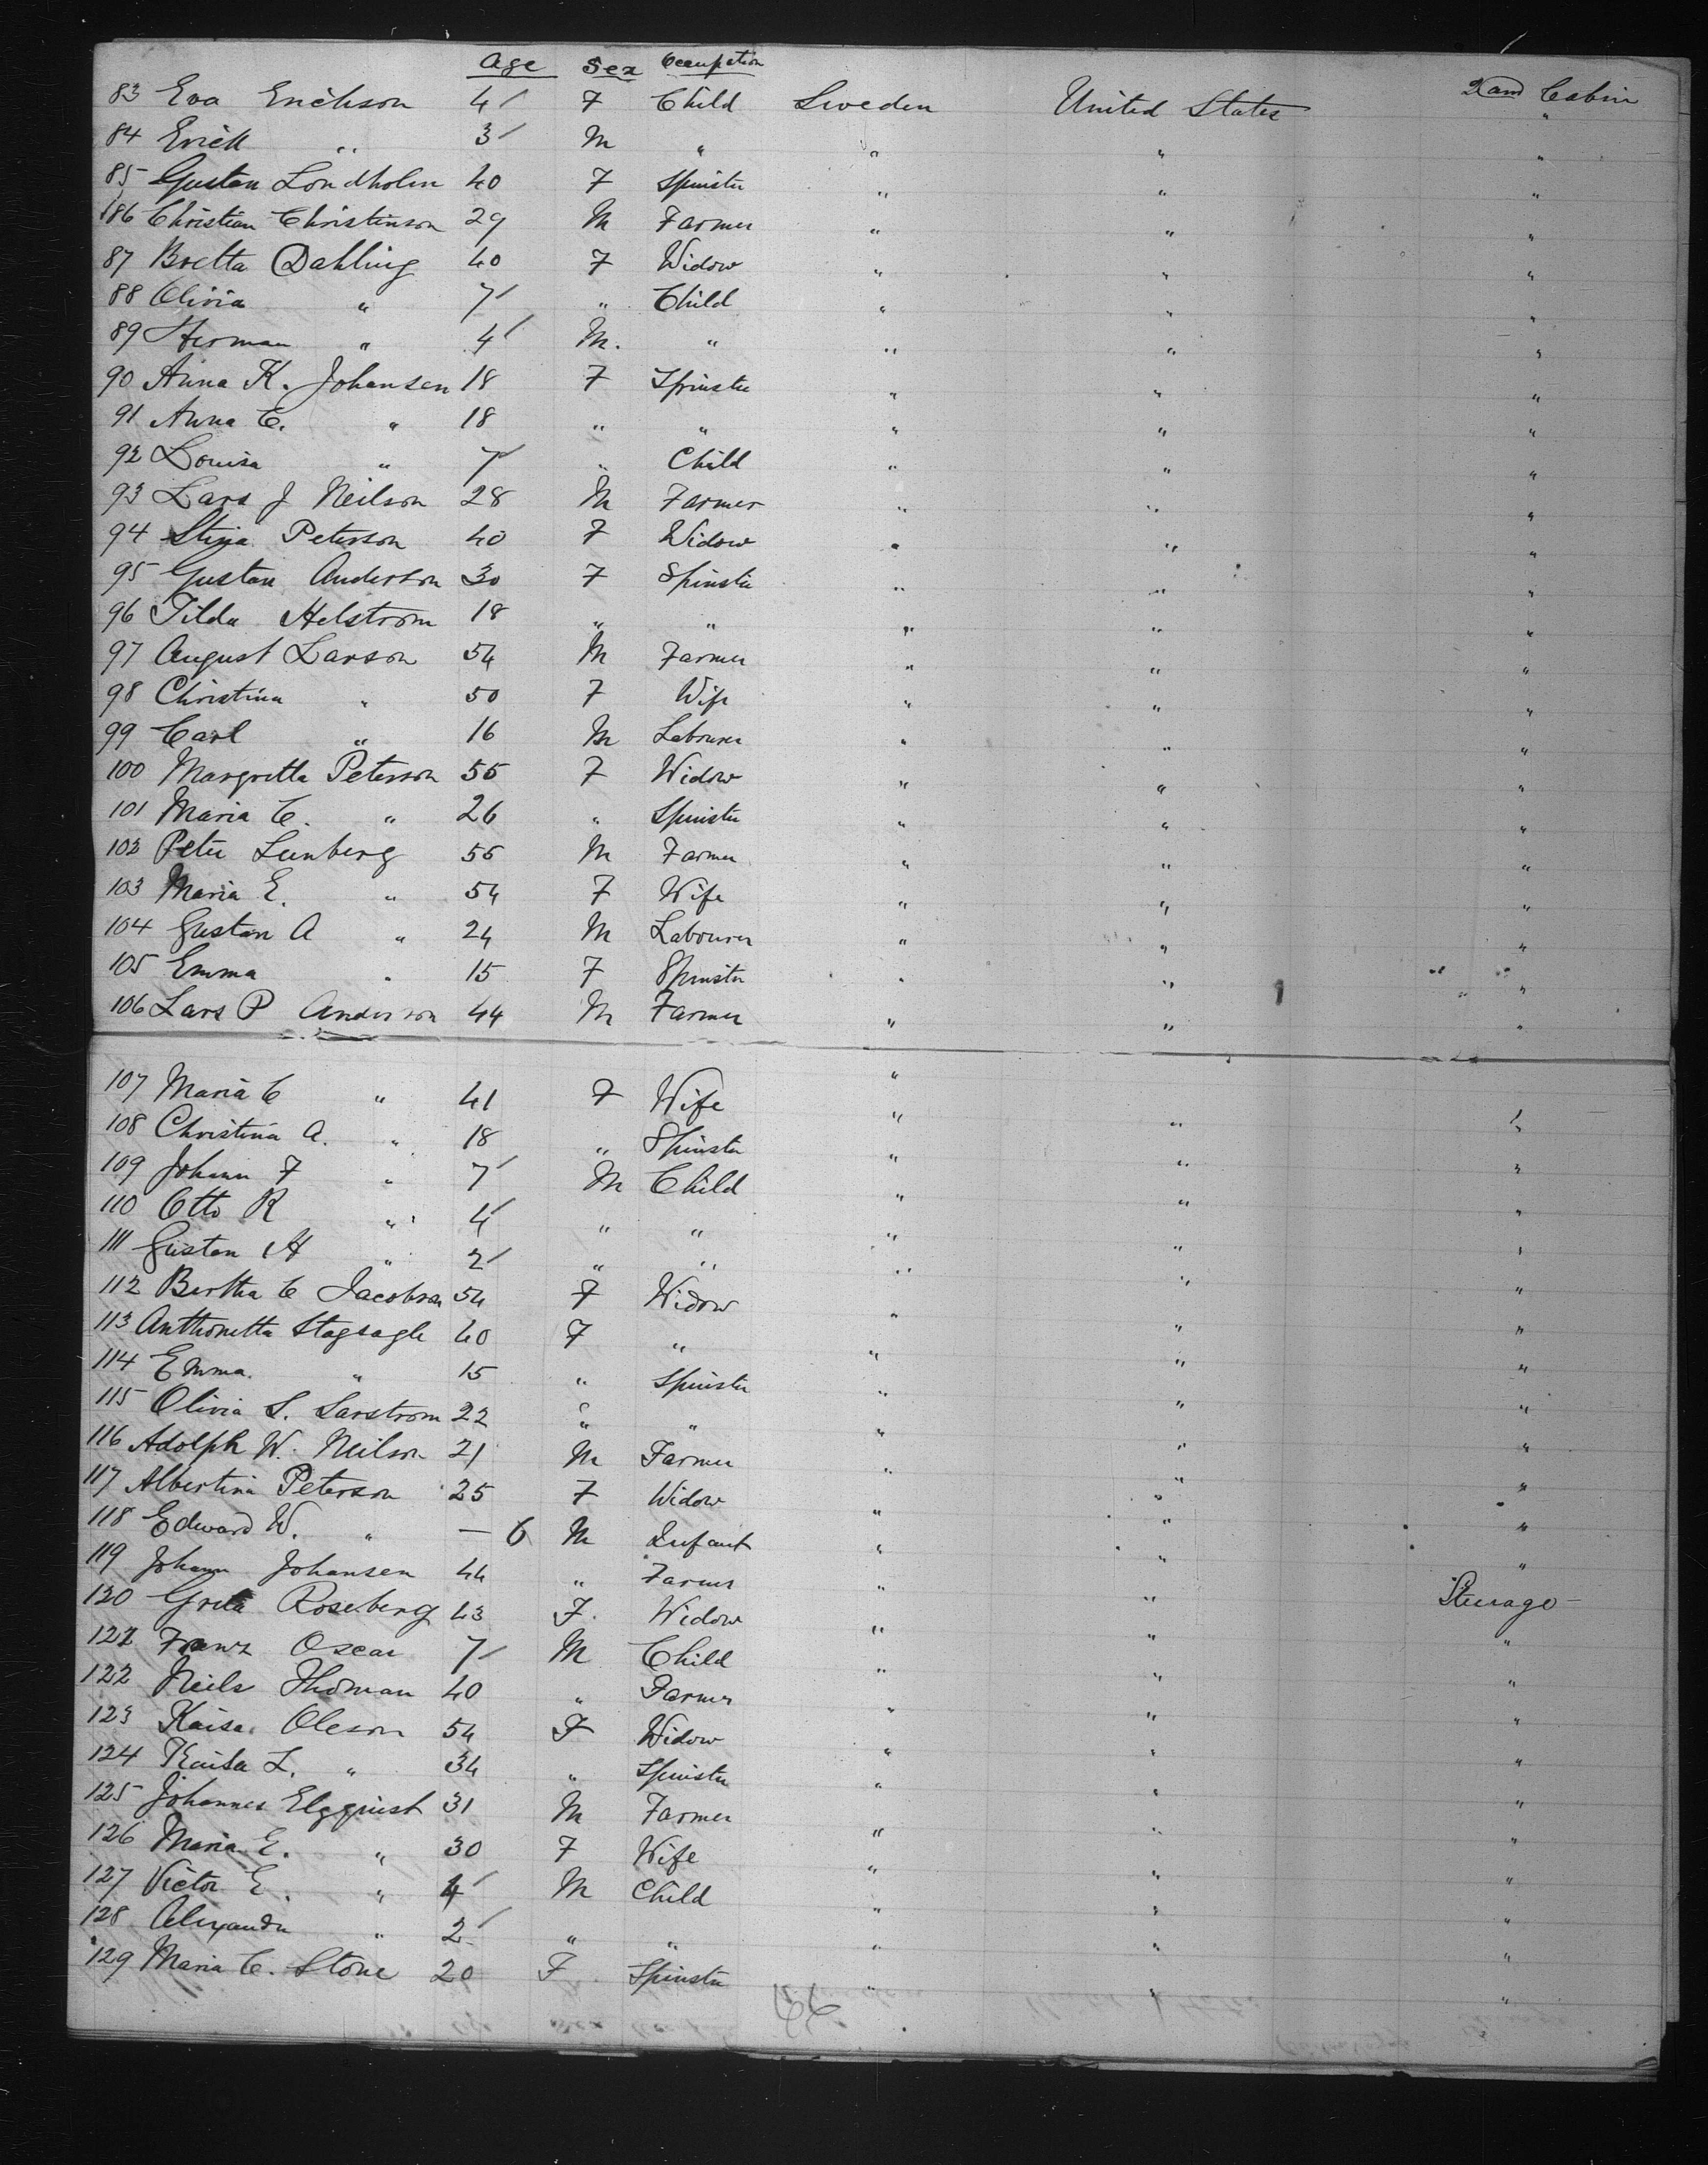 Age Sex Occupation
83 Eva Erickson 4 F Child Sweden United States 2nd Cabin
84 Erick " 3 M " " " "
85 Gustan Londholm 40 F Spinster " " "
86 Christian Christinson 29 M Farmer " " "
87 Bretta Dahling 40 F Widow " " "
88 Olivia " 7 " Child " " "
89 Herman " 4 M. " " " "
90 Anna K. Johansen 18 F Spinster " " "
91 Anna C. " 18 " " " " "
92 Louisa " 7 " Child " " "
93 Lars J Neilson 28 M Farmer " " "
94 Stina Peterson 40 F Widow " " "
95 Gustan Anderson 30 F Spinster " " "
96 Tilda Helstrom 18 " " " " "
97 August Larson 54 M Farmer " " "
98 Christina " 50 F Wife " " "
99 Carl " 16 M Labourer " " "
100 Margretta Peterson 55 F Widow " " "
101 Maria C. " 26 " Spinster " " "
102 Peter Lunberg 55 M Farmer " " "
103 Maria E. " 54 F Wife " " "
104 Gustan A " 24 M Labourer " " "
105 Emma " 15 F Spinster " " "
106 Lars P Anderson 44 M Farmer " " "
107 Maria C " 41 F Wife " " "
108 Christina A. " 18 " Spinster " " "
109 Johann F " 7 M Child " " "
110 Otto R " 4 " " " " "
111 Gustan H " 2 " " " " "
112 Bertha C Jacobson 54 F Widow " " "
113 Anthonetta Stagsagle 40 F " " " "
114 Emma " 15 " Spinster " " "
115 Olivia S. Sarstrom 22 " " " " "
116 Adolph W. Neilson 21 M Farmer " " "
117 Albertina Peterson 25 F Widow " " "
118 Edward W. " — 6 M Infant " " "
119 Johann Johansen 44 " Farmer " " "
120 Greta Roseberg 43 F. Widow " " Steerage
121 Franz Oscar 7 M Child " " "
122 Neils Thoman 40 " Farmer " " "
123 Kaisa Oleson 54 F Widow " " "
124 Kaisa L. " 34 " Spinster " " "
125 Johannes Elgquist 31 M Farmer " " "
126 Maria E. " 30 F Wife " " "
127 Victor E. " 4 M Child " " "
128 Alexander " 2 " " " " "
129 Maria C. Stone 20 F Spinster " " "